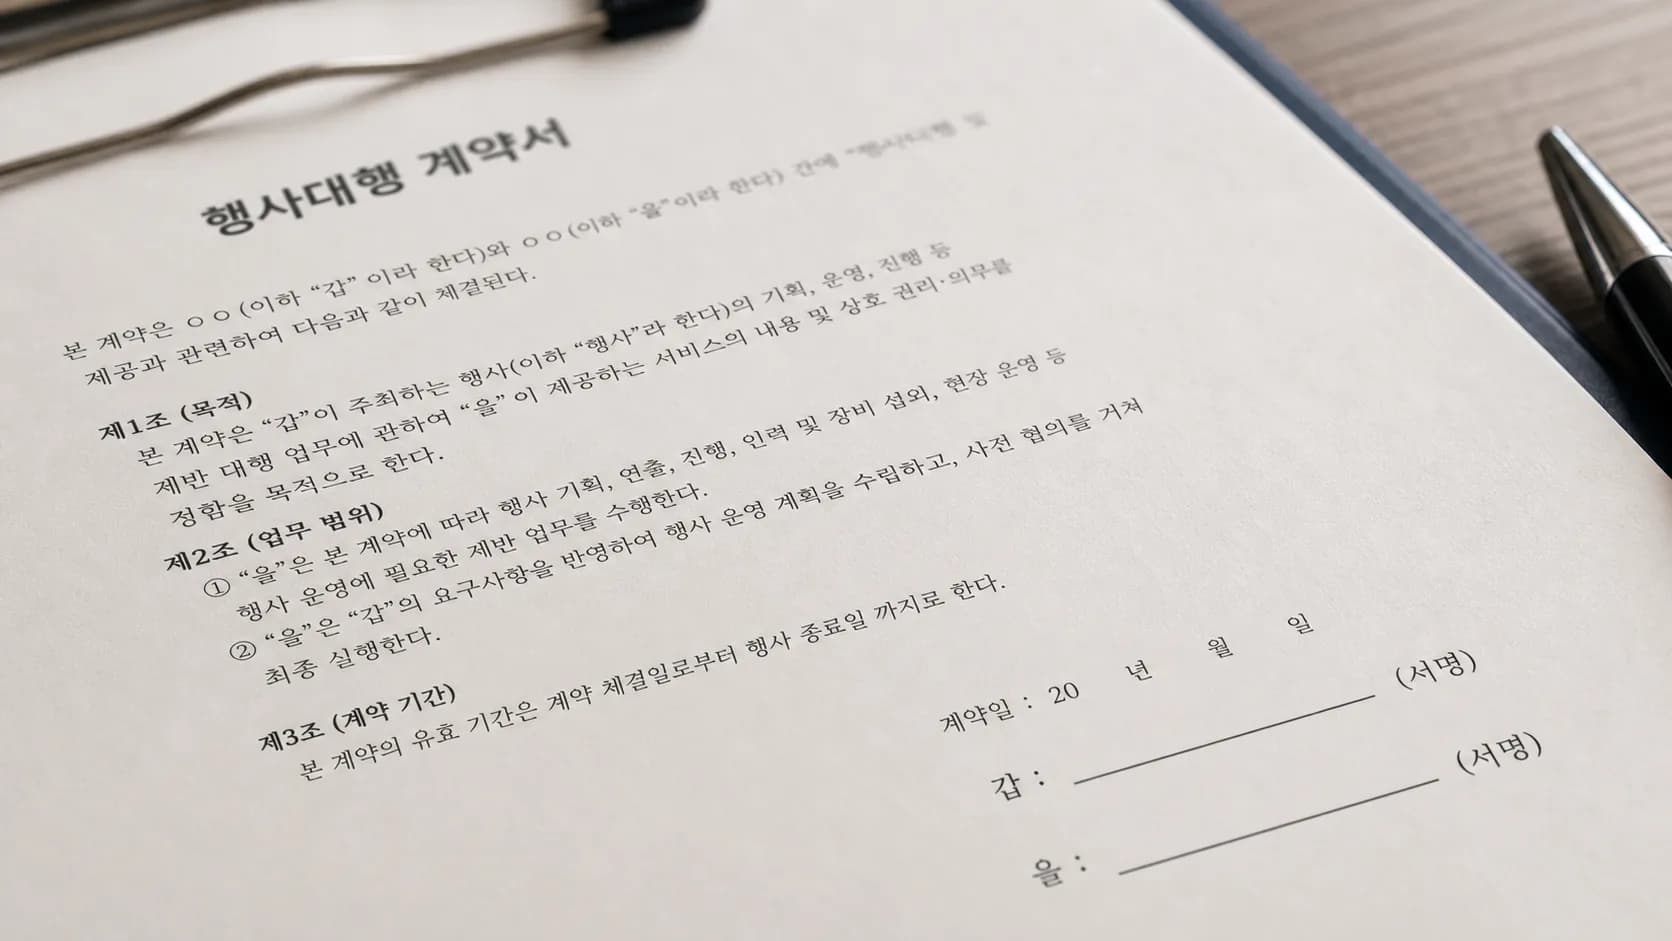 행사대행 계약서
본 계약은 ㅇㅇ(이하 “갑” 이라 한다)와 ㅇㅇ(이하 “을”이라 한다) 간에
제공과 관련하여 다음과 같이 체결된다.
제1조 (목적)
본 계약은 “갑”이 주최하는 행사(이하 “행사”라 한다)의 기획, 운영, 진행 등
제반 대행 업무에 관하여 “을” 이 제공하는 서비스의 내용 및 상호 권리·의무를
정함을 목적으로 한다.
제2조 (업무 범위)
① “을”은 본 계약에 따라 행사 기획, 연출, 진행, 인력 및 장비 섭외, 현장 운영 등
행사 운영에 필요한 제반 업무를 수행한다.
② “을”은 “갑”의 요구사항을 반영하여 행사 운영 계획을 수립하고, 사전 협의를 거쳐
최종 실행한다.
제3조 (계약 기간)
본 계약의 유효 기간은 계약 체결일로부터 행사 종료일 까지로 한다.
계약일 : 20 년 월 일
갑 : (서명)
을 : (서명)